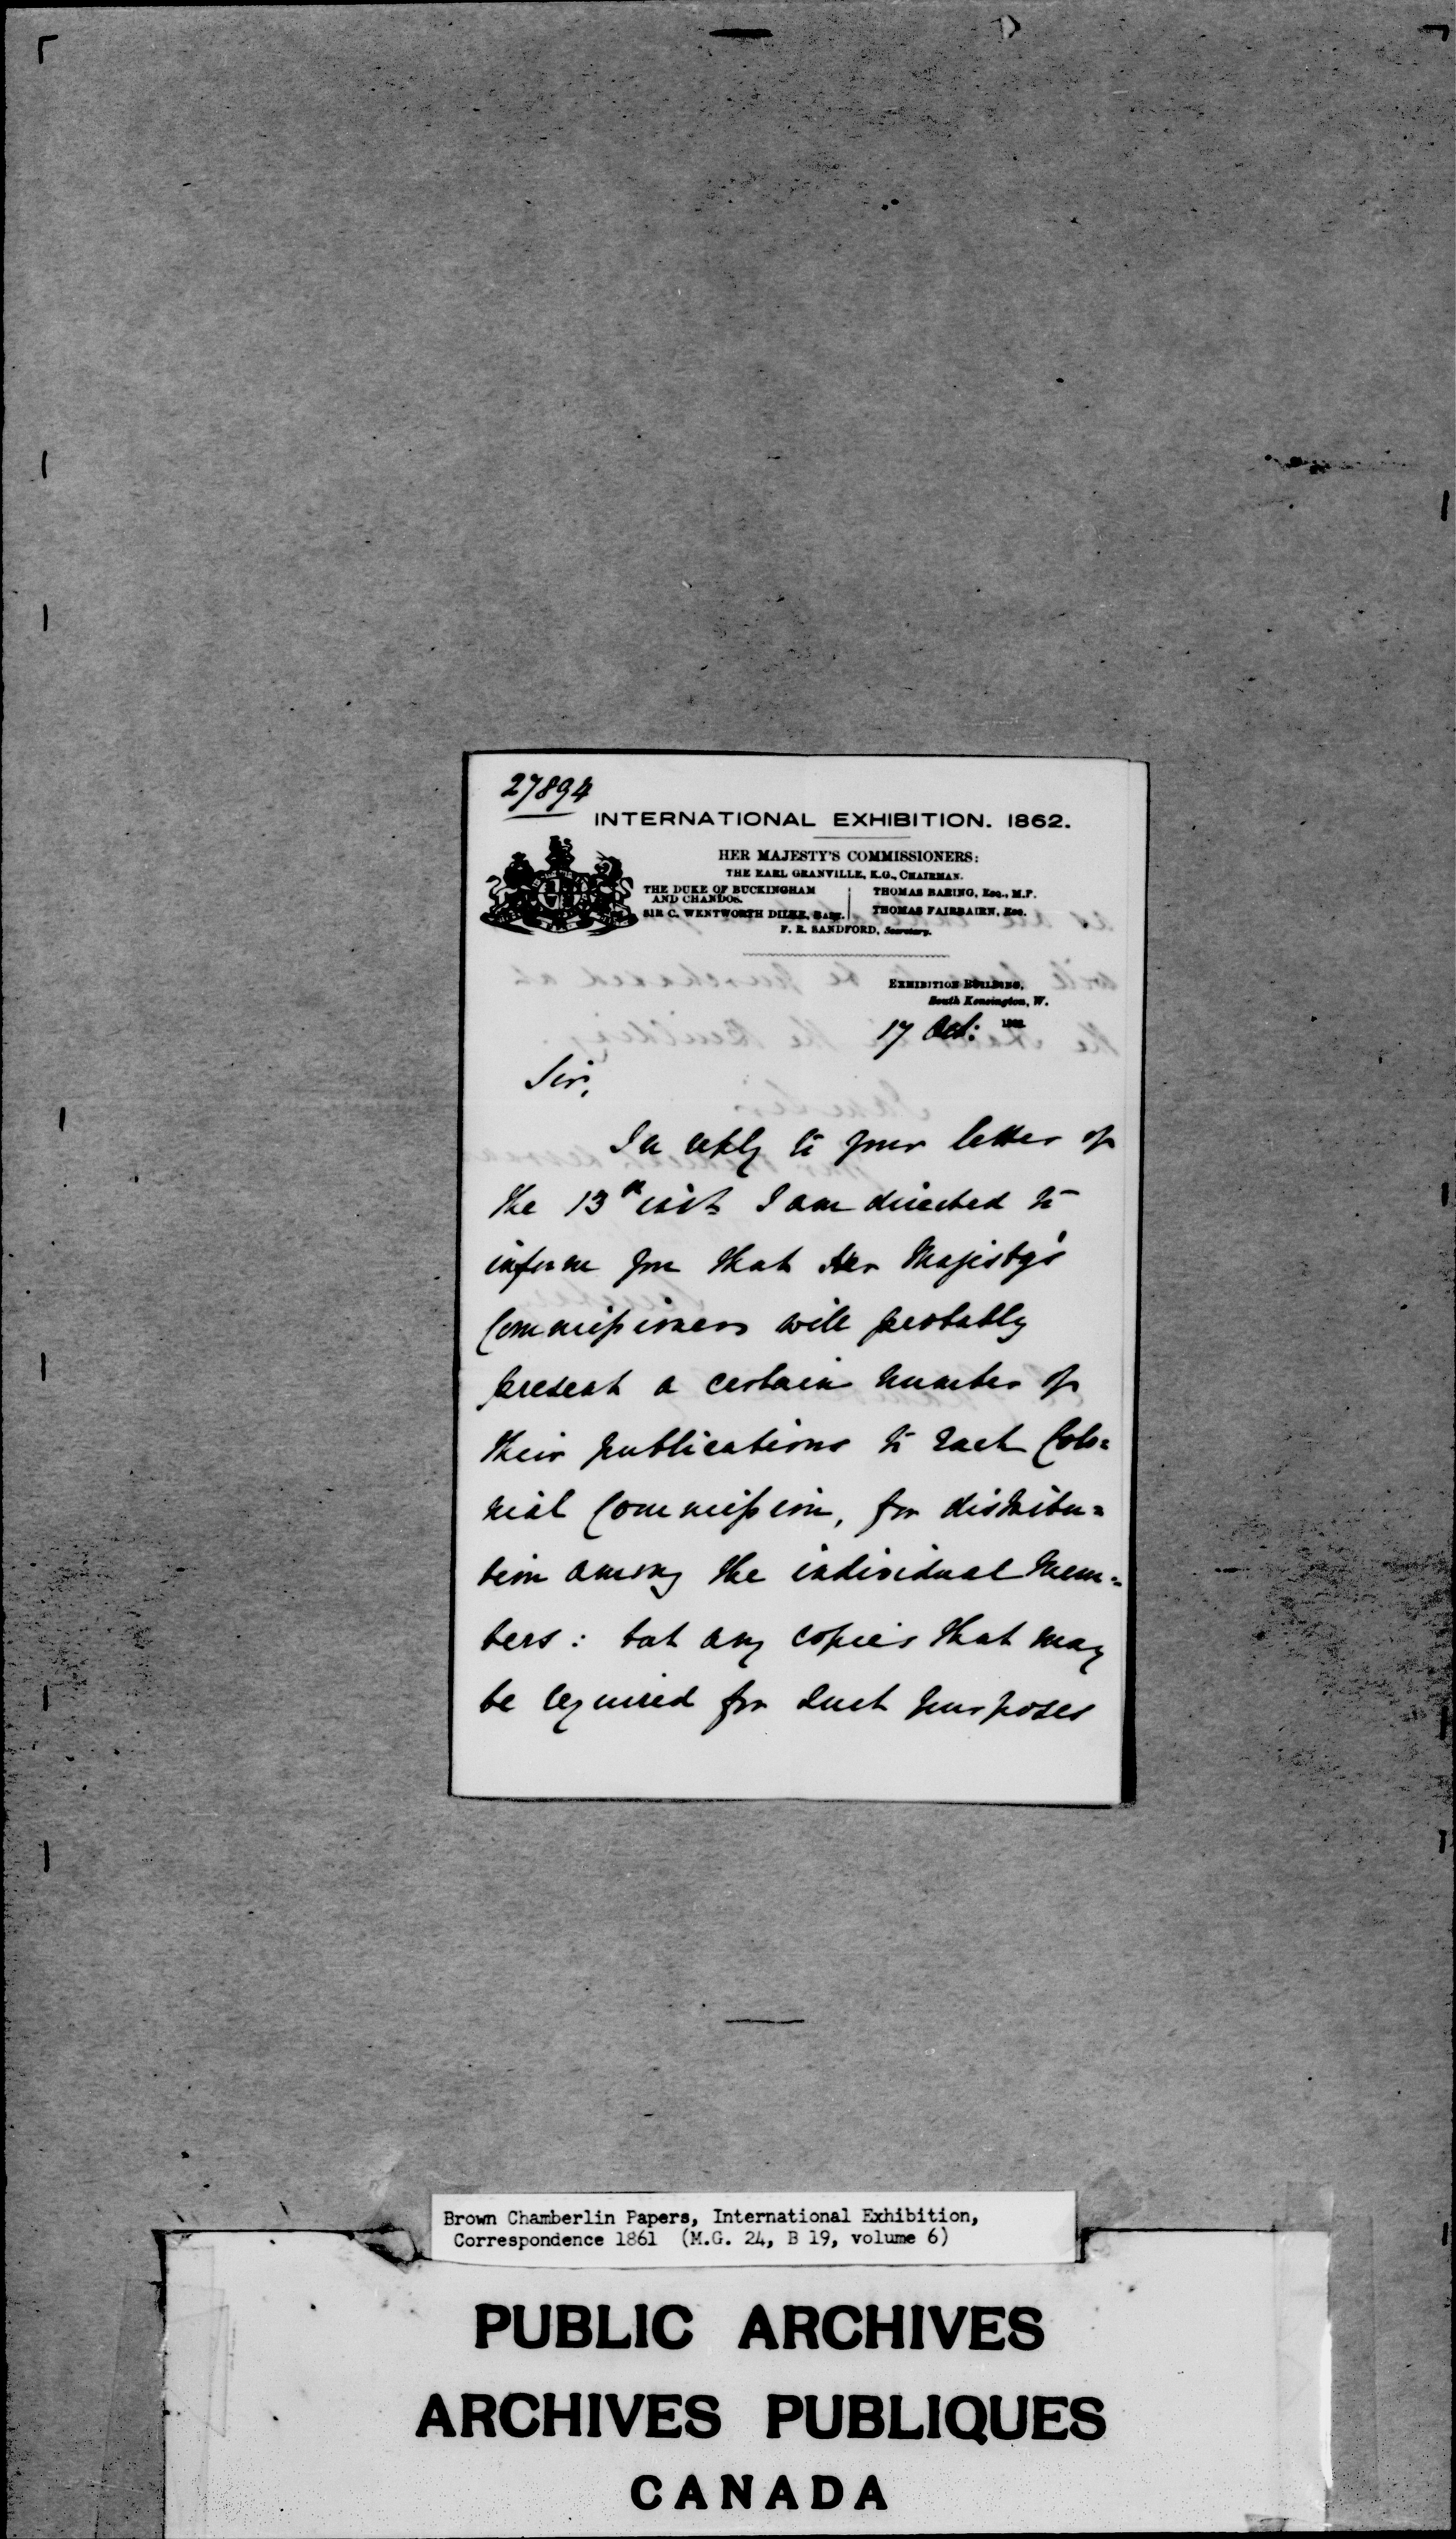 27894
INTERNATIONAL EXHIBITION. 1862.
HER MAJESTY'S COMMISSIONERS:
THE EARL GRANVILLE, K.G., CHAIRMAN.
THE DUKE OF BUCKINGHAM AND CHANDOS.
SIR C. WENTWORTH DILKE, BART.
THOMAS BARING, Esq., M.P.
THOMAS FAIRBAIRN, Esq.
F. R. SANDFORD, Secretary.
EXHIBITION BUILDING,
South Kensington, W.
17 Oct: 1862.
Sir,
In reply to your letter of
the 13th inst I am directed to
inform you that Her Majesty's
Commissioners will probably
present a certain number of
their publications to each Colo=
nial Commission, for distribu=
tion among the individual Mem=
bers: but any copies that may
be required for such purposes
Brown Chamberlin Papers, International Exhibition,
Correspondence 1861 (M.G. 24, B 19, volume 6)
PUBLIC ARCHIVES
ARCHIVES PUBLIQUES
CANADA